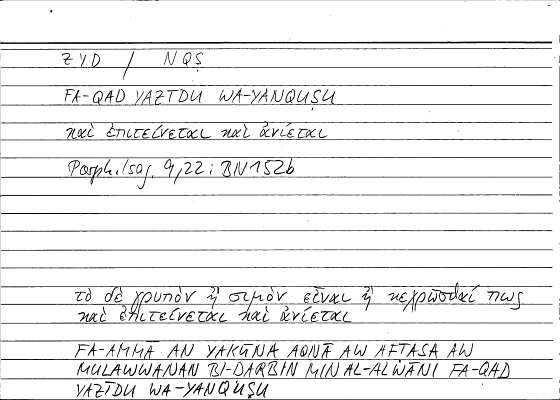 ZYD / NQṢ
FA-QAD YAZĪDU WA-YANQUṢU
καὶ ἐπιτείνεται καὶ ἀνίεται
Porph. Isag. 9,22 : BN 152b
τὸ δὲ γρυπὸν ἢ σιμὸν εἶναι ἢ κεχρῶσθαί πως
καὶ ἐπιτείνεται καὶ ἀνίεται
FA-AMMĀ AN YAKŪNA AQNĀ AW AFṬASA AW
MULAWWANAN BI-ḌARBIN MIN AL-ALWĀNI FA-QAD
YAZĪDU WA-YANQUṢU